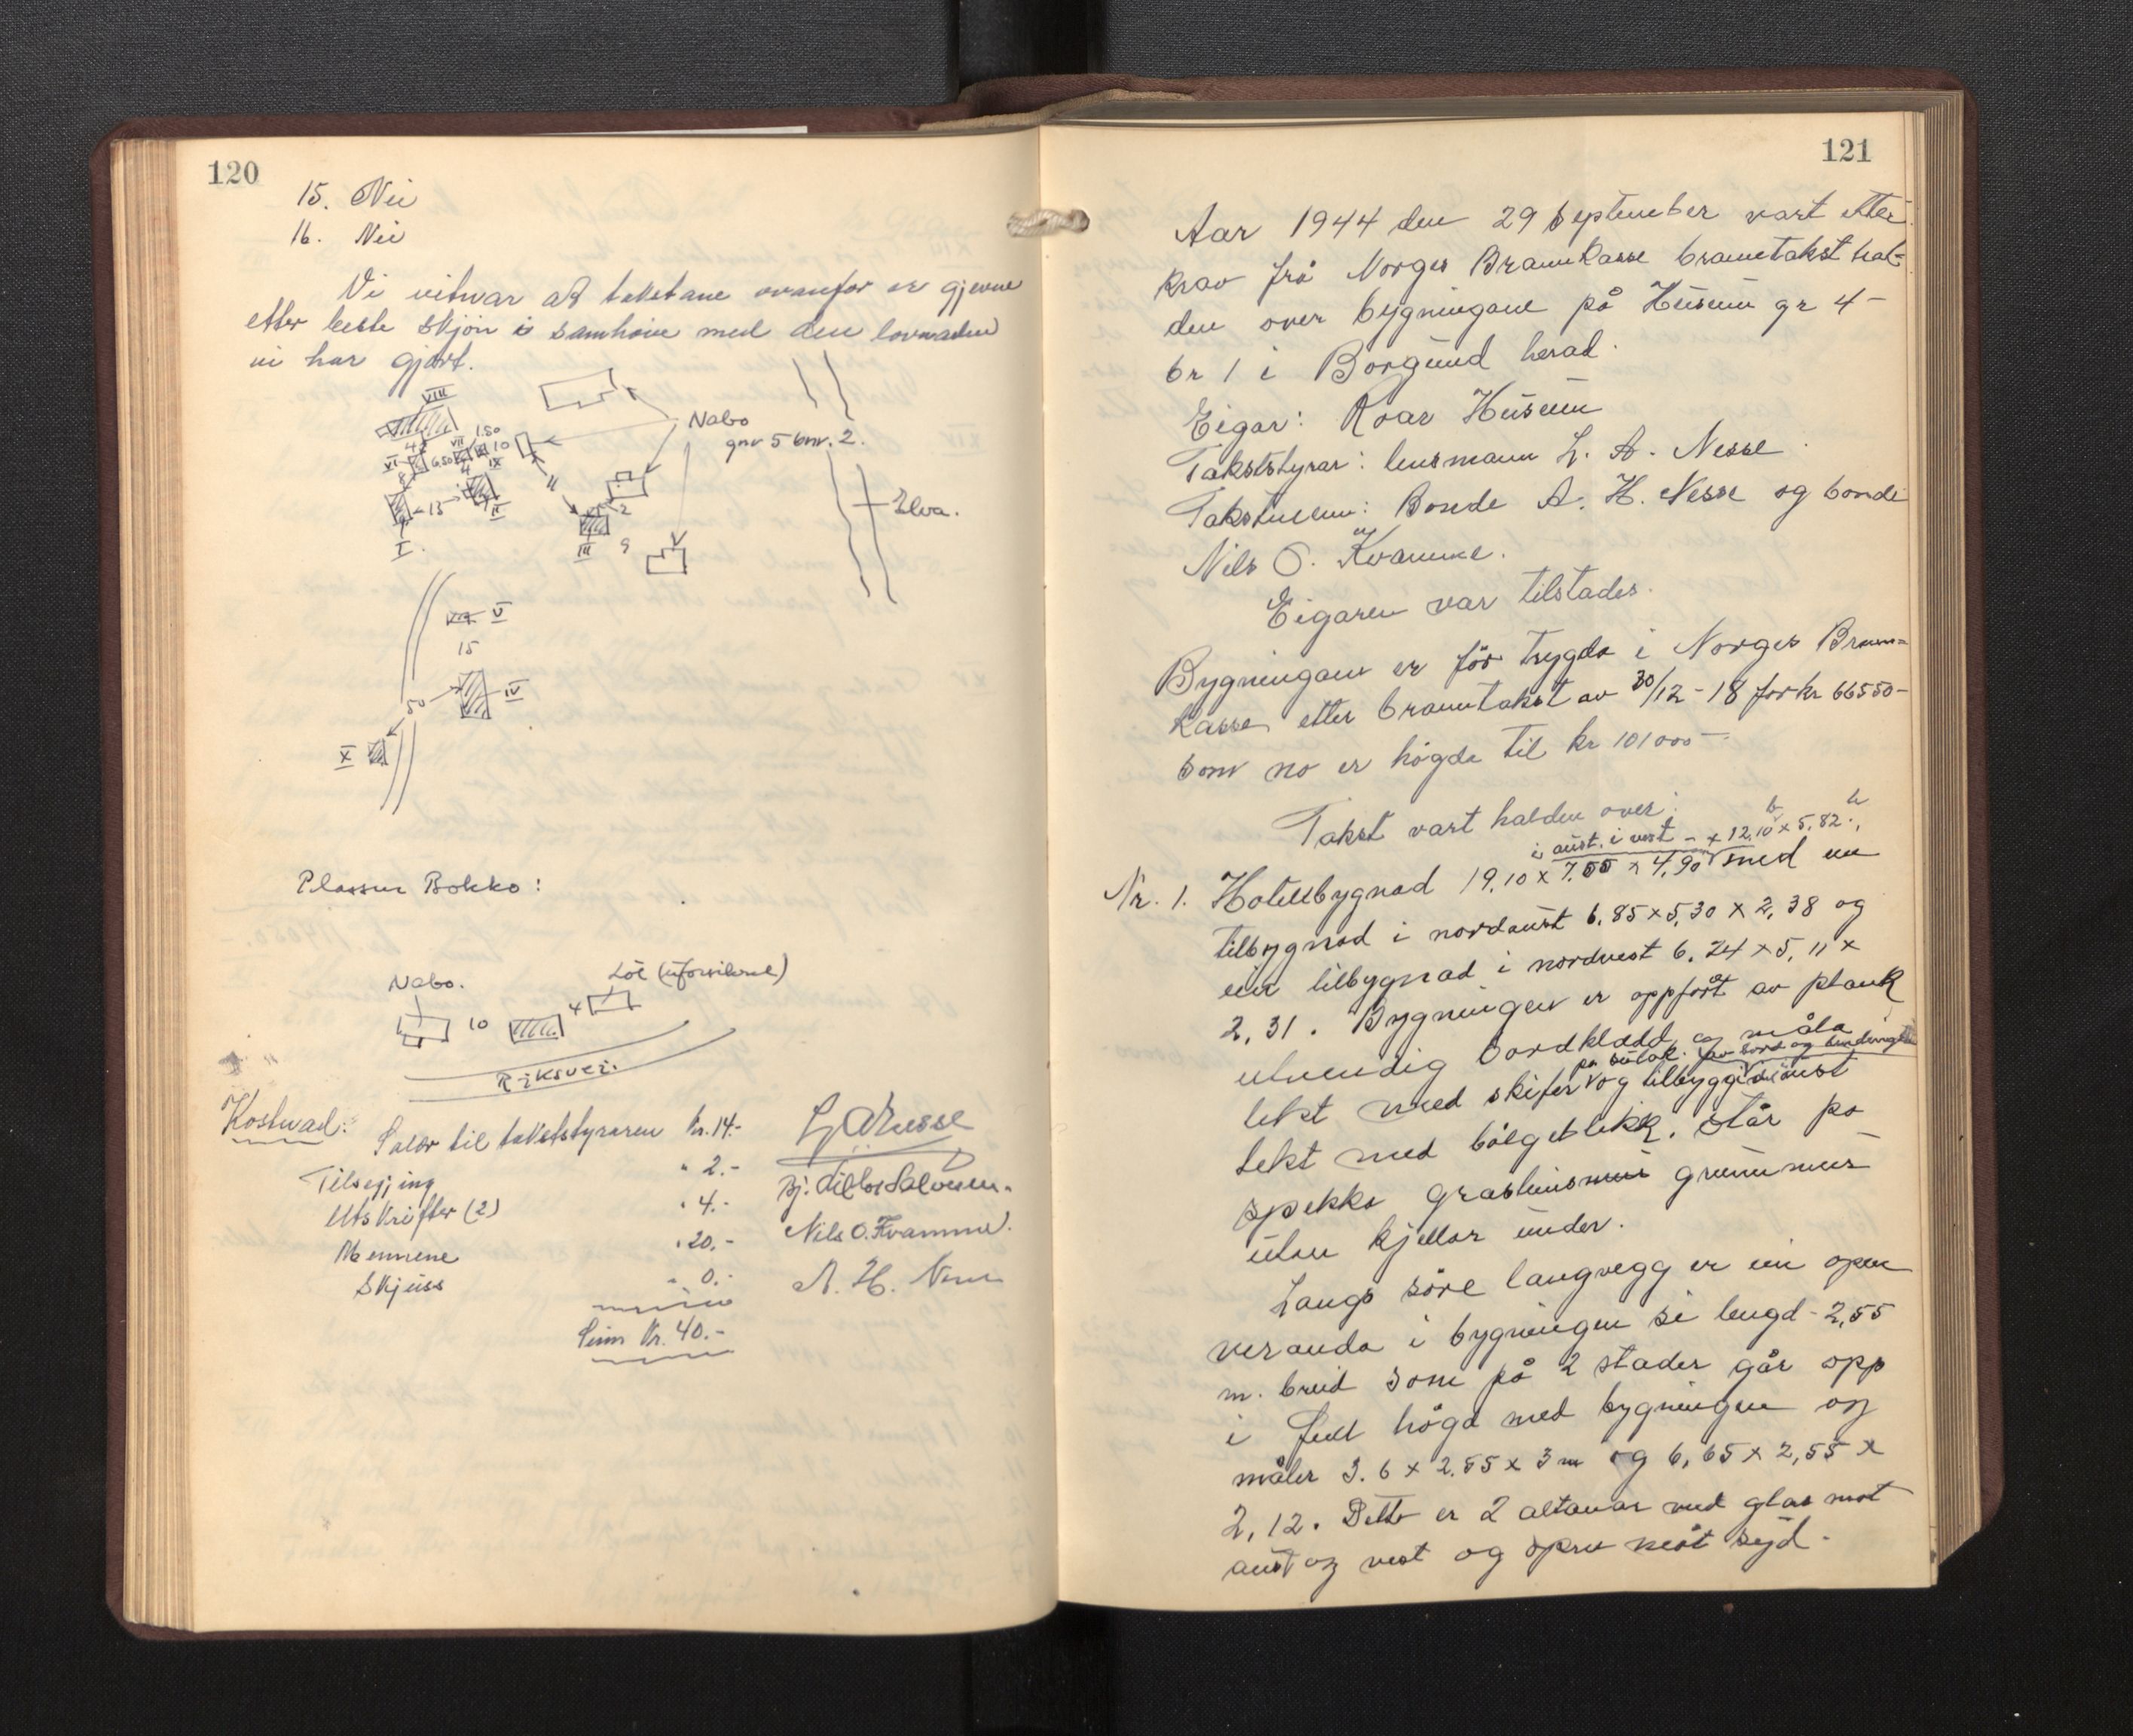 120
15. Nei
16. Nei
Vi vitnar at takstane ovanfor er gjevne
etter beste skjön i samhöve med den lovnaden
vi har gjort.
VIII
Nabo
gnr 5 bnr. 2.
1.50
VII
10
4
XI
6.50
IX
4
8
13
II
I.
11
2
III
9
Elva.
V
15
IV
50
X
Plassen Bokko:
Nabo.
Löe (uforsikra)
10
4
Riksvei.
Kostnad:
Salær til takststyraren kr. 14.-
Tilsegjing " 2.-
Utskrifter (2) " 4.-
Mennene " 20.-
Skjuss " 0.-
Sum kr. 40.-
L A Nesse
Nils O. Kvamme.
A. H. Nesse
121
Aar 1944 den 29 September vart etter
krav frå Norges Brannkasse branntakst hal-
den over bygningane på Husum gr 4 -
br 1 i Borgund herad.
Eigar: Roar Husum
Takststyrar: lensmann L. A. Nesse
Takstmenn: Bonde A. H. Nesse og bonde
Nils O. Kvamme.
Eigaren var tilstades.
Bygningane er för trygda i Norges Brann-
kasse etter branntakst av 30/12 - 18 for kr 66550-
som no er högda til kr 101000-
Takst vart halden over:
i aust. i vest - x 12,10 x 5,82.
b h
Nr. 1. Hotellbygnad 19,10 x 7,55 x 4,90 med ein
tilbygnad i nordaust 6,85 x 5,30 x 2,38 og
ein tilbygnad i nordvest 6,24 x 5,11 x
2,31. Bygningen er oppfört av plank
utvendig bordkledd og måla
på sutak. av bord og
tekt med skifer og tilbygg i aust
tekt med bölgeblekk. Står på
spekka grasteinsmur grunnmur
utan kjellar under.
Langs söre langvegg er ein open
veranda i bygningen si lengd - 2,55
m. breid som på 2 stader går opp
i full högd med bygningen og
måler 3.6 x 2,55 x 3 m og 6,65 x 2,55 x
2,12. Dette er 2 altanar med glas mot
aust og vest og open mot syd.